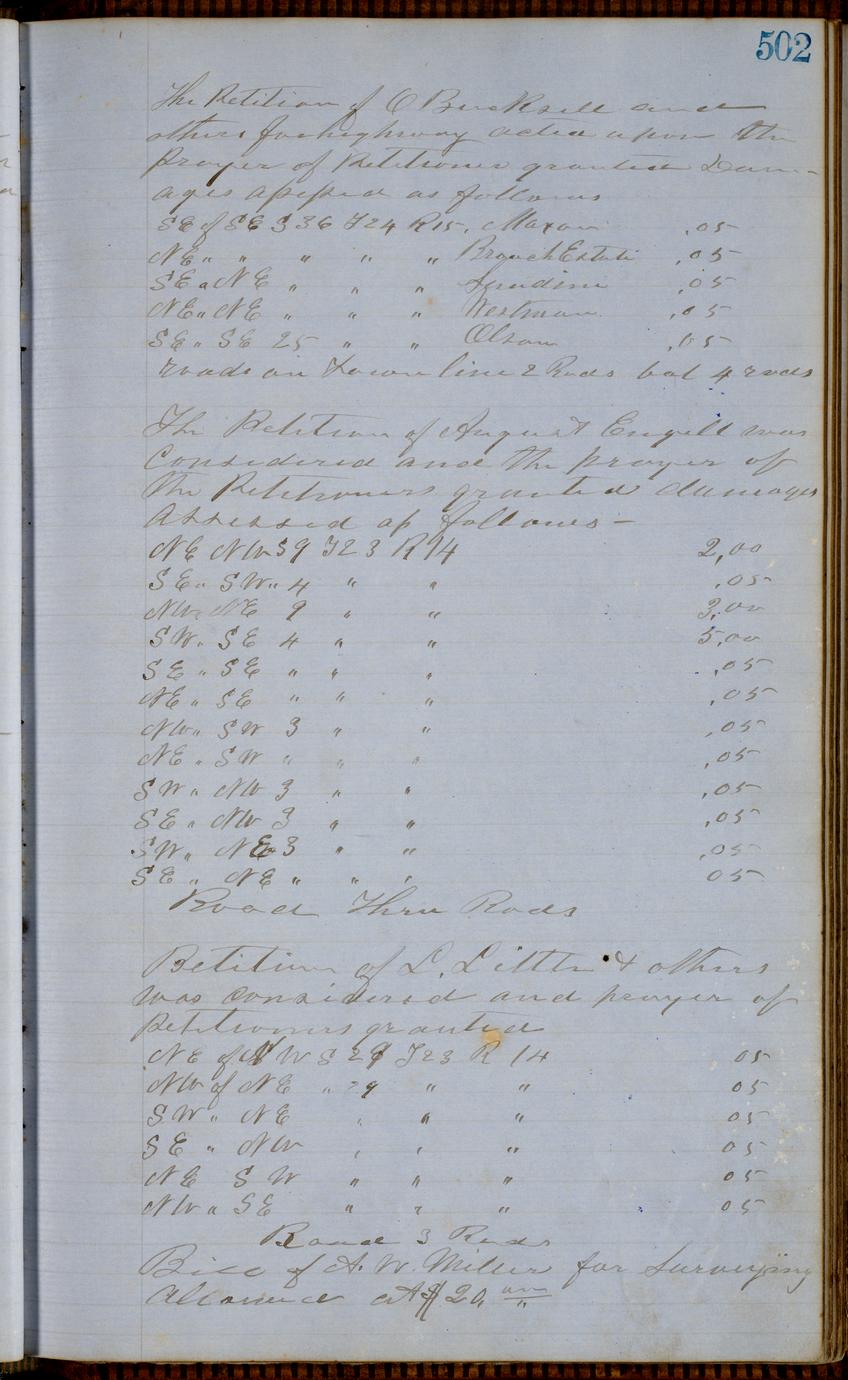 502
The Petition of O Bucksell and
others for highway acted upon the
Prayer of Petitioner granted Dam-
ages assessed as follows
SE of SE S 36 T24 R15, Maxon .05
NE " " " " " Branch Estate .05
SE " NE " " " .05
NE " NE " " " Westman .05
SE " SE 25 " " Olson .05
road on town line 2 Rods bal 4 rods
The Petition of August Engell was
Considered and the prayer of
the Petitioners granted damages
Assessed as follows -
NE NW S9 T23 R14 2,00
SE " SW " 4 " " .05
NW " NE 9 " " 3,00
SW " SE 4 " " 5,00
SE " SE " " " .05
NE " SE " " " .05
NW " SW 3 " " .05
NE " SW " " " .05
SW " NW 3 " " .05
SE " NW 3 " " .05
SW " NE 3 " " .05
SE " NE " " " 05
Road Three Rods
Petition of L. Little & others
was considered and prayer of
Petitioners granted
NE of NW S 29 T23 R 14 05
NW of NE " 29 " " 05
SW " NE " " " 05
SE " NW " " " 05
NE SW " " " 05
NW " SE " " " 05
Road 3 Rods
Bill of A. W. Miller for Surveying
Allowed at $20,